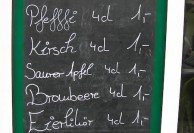 Pfeffi 4cl 1,-
Kirsch 4cl 1,-
Saurer Apfel 4cl 1,-
Brombeere 4cl 1,-
Eierlikör 4cl 1,-